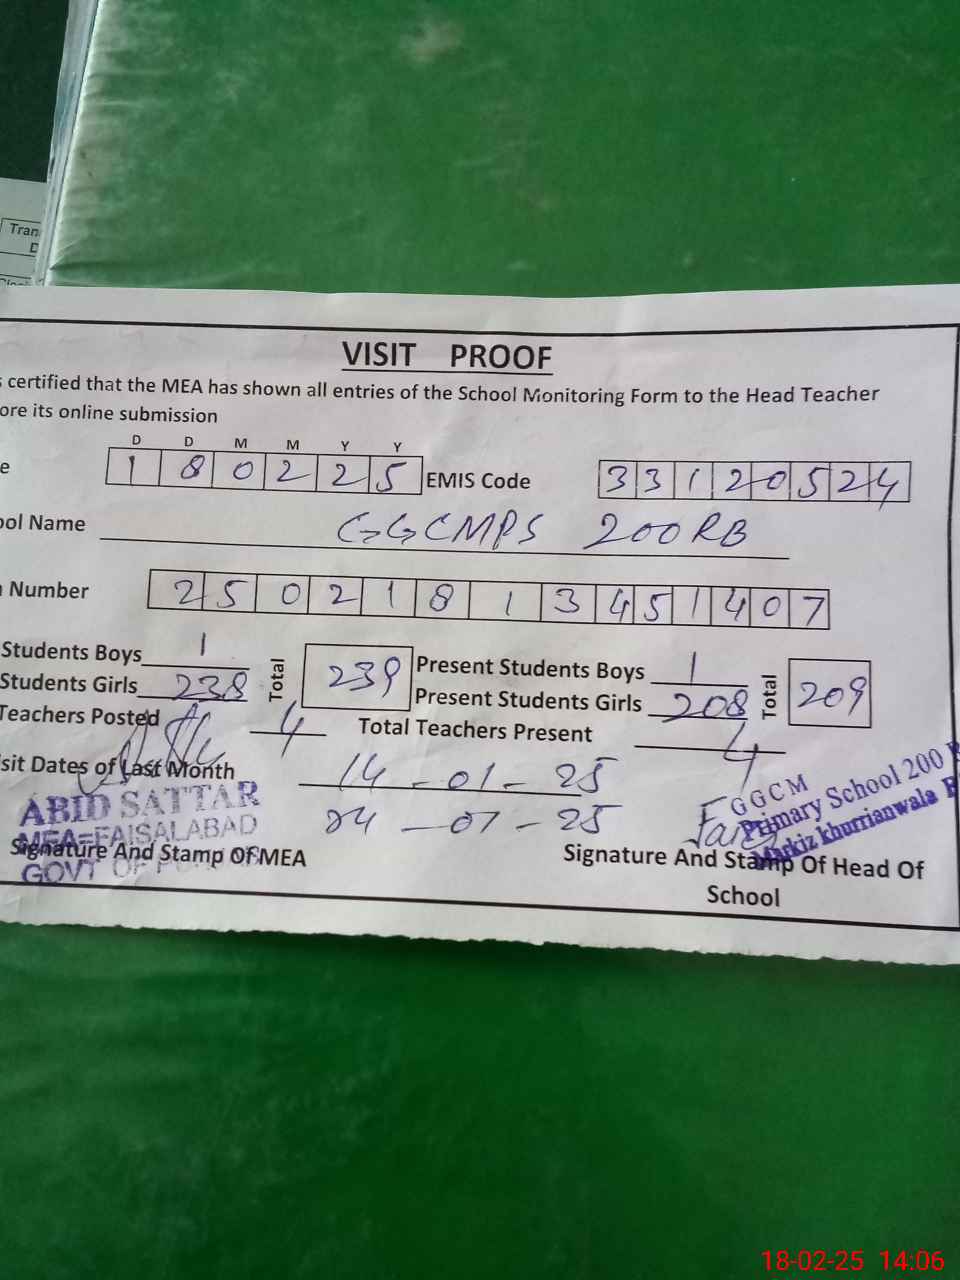 Tran
D
VISIT PROOF
certified that the MEA has shown all entries of the School Monitoring Form to the Head Teacher
ore its online submission
D D M M Y Y
e 1 8 0 2 2 5 EMIS Code 3 3 1 2 0 5 2 4
ool Name GGCMPS 200RB
Number 2 5 0 2 1 8 1 3 4 5 1 4 0 7
Students Boys 1 Total 239 Present Students Boys 1 Total 209
Students Girls 238 Present Students Girls 208
Teachers Posted 4 Total Teachers Present 4
sit Dates of Last Month 14-01-25
24-01-25
ABID SATTAR
MEA-FAISALABAD
GOVT OF
Signature And Stamp Of MEA
GGCM
Primary School 200
Markiz khurrianwala
Signature And Stamp Of Head Of
School
18-02-25 14:06